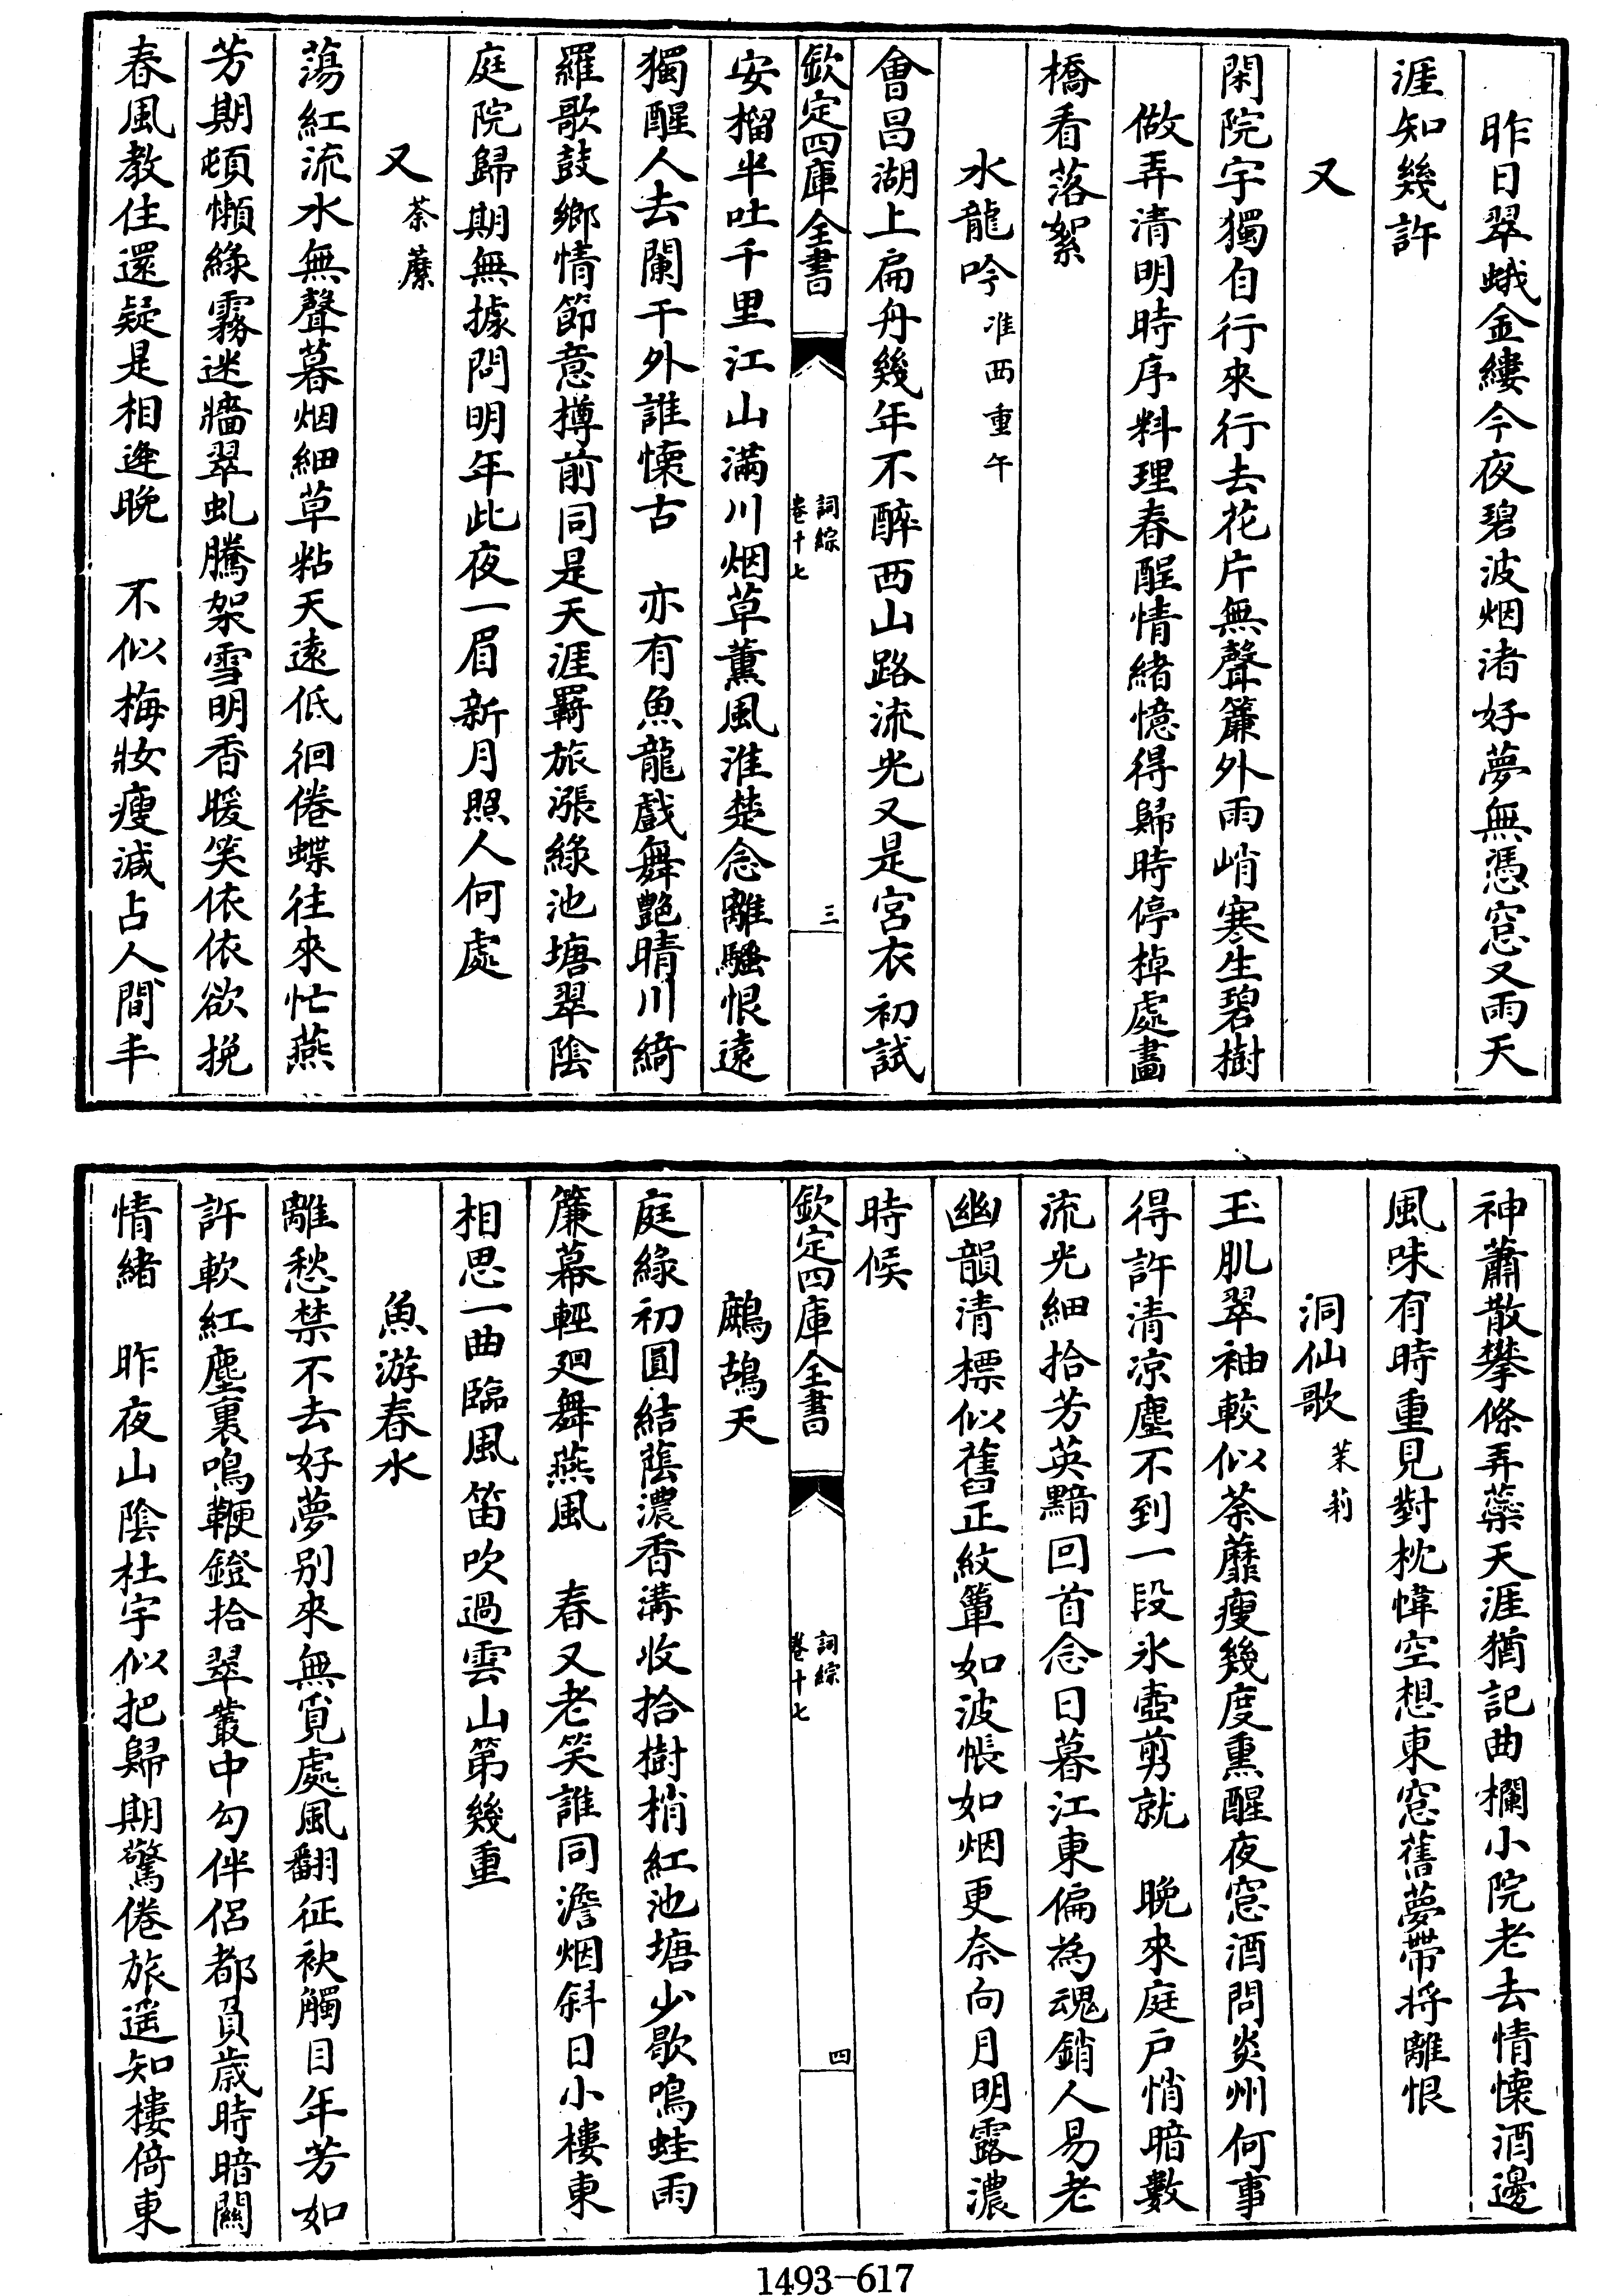 昨日翠蛾金縷今夜碧波烟渚好夢無憑窓又雨天
涯知幾許
又
閑院宇獨自行來行去花片無聲簾外雨峭寒生碧樹
做弄清明時序料理春酲情緒憶得歸時停棹處畫
橋看落絮
水龍吟淮西重午
會昌湖上扁舟幾年不醉西山路流光又是宮衣初試
欽定四庫全書
詞綜
卷十七
三
安榴半吐千里江山滿川烟草薰風淮楚念離騷恨遠
獨醒人去闌干外誰懷古 亦有魚龍戲舞艶晴川綺
羅歌鼓鄉情節意樽前同是天涯羇旅漲綠池塘翠陰
庭院歸期無據問明年此夜一眉新月照人何處
又荼蘼
蕩紅流水無聲暮烟細草粘天遠低徊倦蝶往來忙燕
芳期頓懶綠霧迷牆翠虬騰架雪明香暖笑依依欲挽
春風教住還疑是相逢晚 不似梅妝瘦減占人間丰
神蕭散攀條弄蘂天涯猶記曲欄小院老去情懷酒邊
風味有時重見對枕幃空想東窓舊夢帶將離恨
洞仙歌茉莉
玉肌翠袖較似荼蘼瘦幾度熏醒夜窓酒問炎州何事
得許清凉塵不到一段氷壺剪就 晚來庭户悄暗數
流光細拾芳英黯回首念日暮江東偏為魂銷人易老
幽韻清標似舊正紋簟如波帳如烟更奈向月明露濃
時候
欽定四庫全書
詞綜
卷十七
四
鷓鴣天
庭綠初圓結蔭濃香溝收拾樹梢紅池塘少歇鳴蛙雨
簾幕輕廻舞燕風 春又老笑誰同澹烟斜日小樓東
相思一曲臨風笛吹過雲山第幾重
魚游春水
離愁禁不去好夢别來無覓處風翻征袂觸目年芳如
許軟紅塵裏鳴鞭鐙拾翠叢中勾伴侶都負歲時暗關
情緒 昨夜山陰杜宇似把歸期驚倦旅遥知樓倚東
1493-617